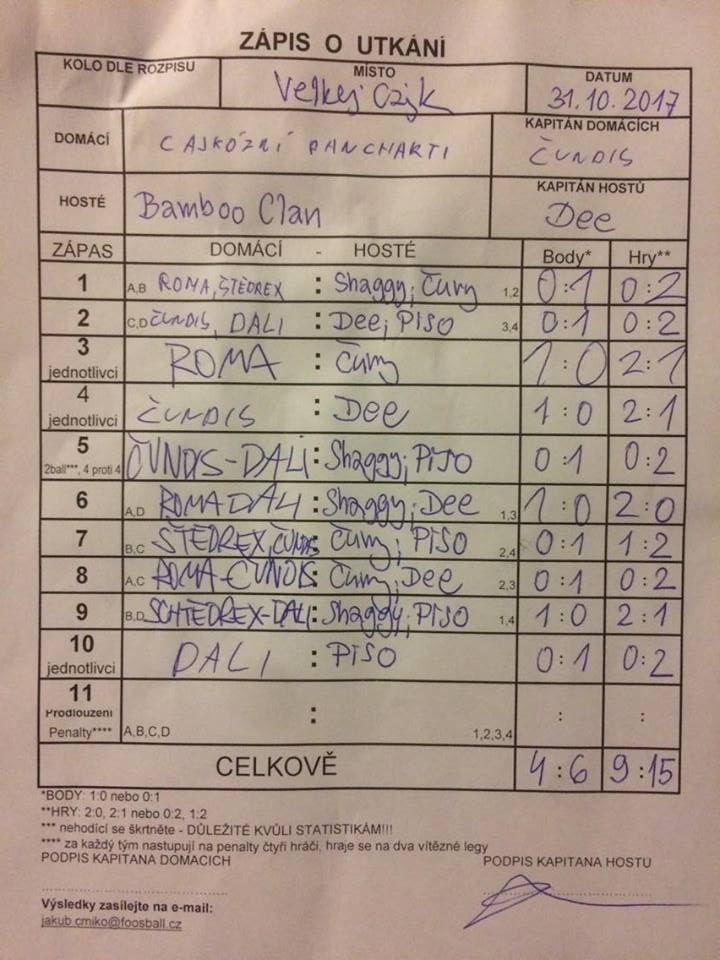 ZÁPIS O UTKÁNÍ
KOLO DLE ROZPISU MÍSTO DATUM
Velkej Czjk 31.10.2017
DOMÁCÍ CAJKÓZNÍ PANCHARTI KAPITÁN DOMÁCÍCH
ČUNDIS
HOSTÉ Bamboo Clan KAPITÁN HOSTŮ
Dee
ZÁPAS DOMÁCÍ - HOSTÉ Body* Hry**
1 A,B ROMA, ŠTĚDREX : Shaggy; Čury 1,2 0:1 0:2
2 C,D ČUNDIS, DALI : Dee; PISO 3,4 0:1 0:2
3 jednotlivci ROMA : Čury 1:0 2:1
4 jednotlivci ČUNDIS : Dee 1:0 2:1
5 2ball***, 4 proti 4 ČUNDIS-DALI : Shaggy; PISO 0:1 0:2
6 A,D ROMA DALI : Shaggy; Dee 1,3 1:0 2:0
7 B,C ŠTĚDREX, ČUNDIS : Čury; PISO 2,4 0:1 1:2
8 A,C ROMA-ČUNDIS : Čury, Dee 2,3 0:1 0:2
9 B,D SCHTĚDREX-DALI : Shaggy; PISO 1,4 1:0 2:1
10 jednotlivci DALI : PISO 0:1 0:2
11 Prodloužení : : :
Penalty**** A,B,C,D 1,2,3,4
CELKOVĚ 4:6 9:15
*BODY: 1:0 nebo 0:1
**HRY: 2:0, 2:1 nebo 0:2, 1:2
*** nehodící se škrtněte - DŮLEŽITÉ KVŮLI STATISTIKÁM!!!
**** za každý tým nastupují na penalty čtyři hráči, hraje se na dva vítězné legy
PODPIS KAPITANA DOMACICH PODPIS KAPITANA HOSTU
Výsledky zasílejte na e-mail:
jakub.cmiko@foosball.cz